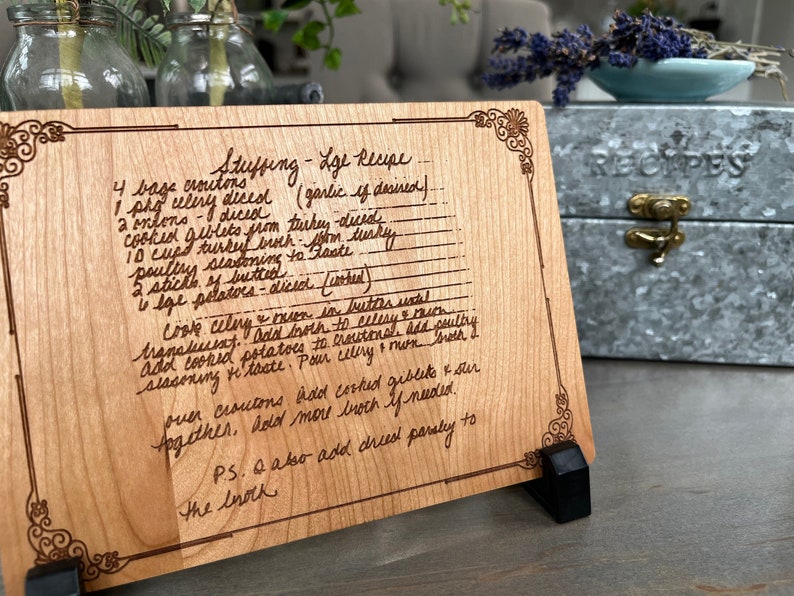 Stuffing - Lge Recipe
4 bags croutons
1 pkg celery diced (garlic if desired)
2 onions - diced
cooked giblets from turkey - diced
10 cups turkey broth - from turkey
poultry seasoning to taste
2 sticks of butter
6 lge potatoes - diced (cooked)
Cook celery & onion in butter until
translucent. Add broth to celery & onion
Add cooked potatoes to croutons. Add poultry
seasoning to taste. Pour celery & onion broth
over croutons. Add cooked giblets & stir
together. Add more broth if needed.
P.S. I also add dried parsley to
the broth
RECIPES